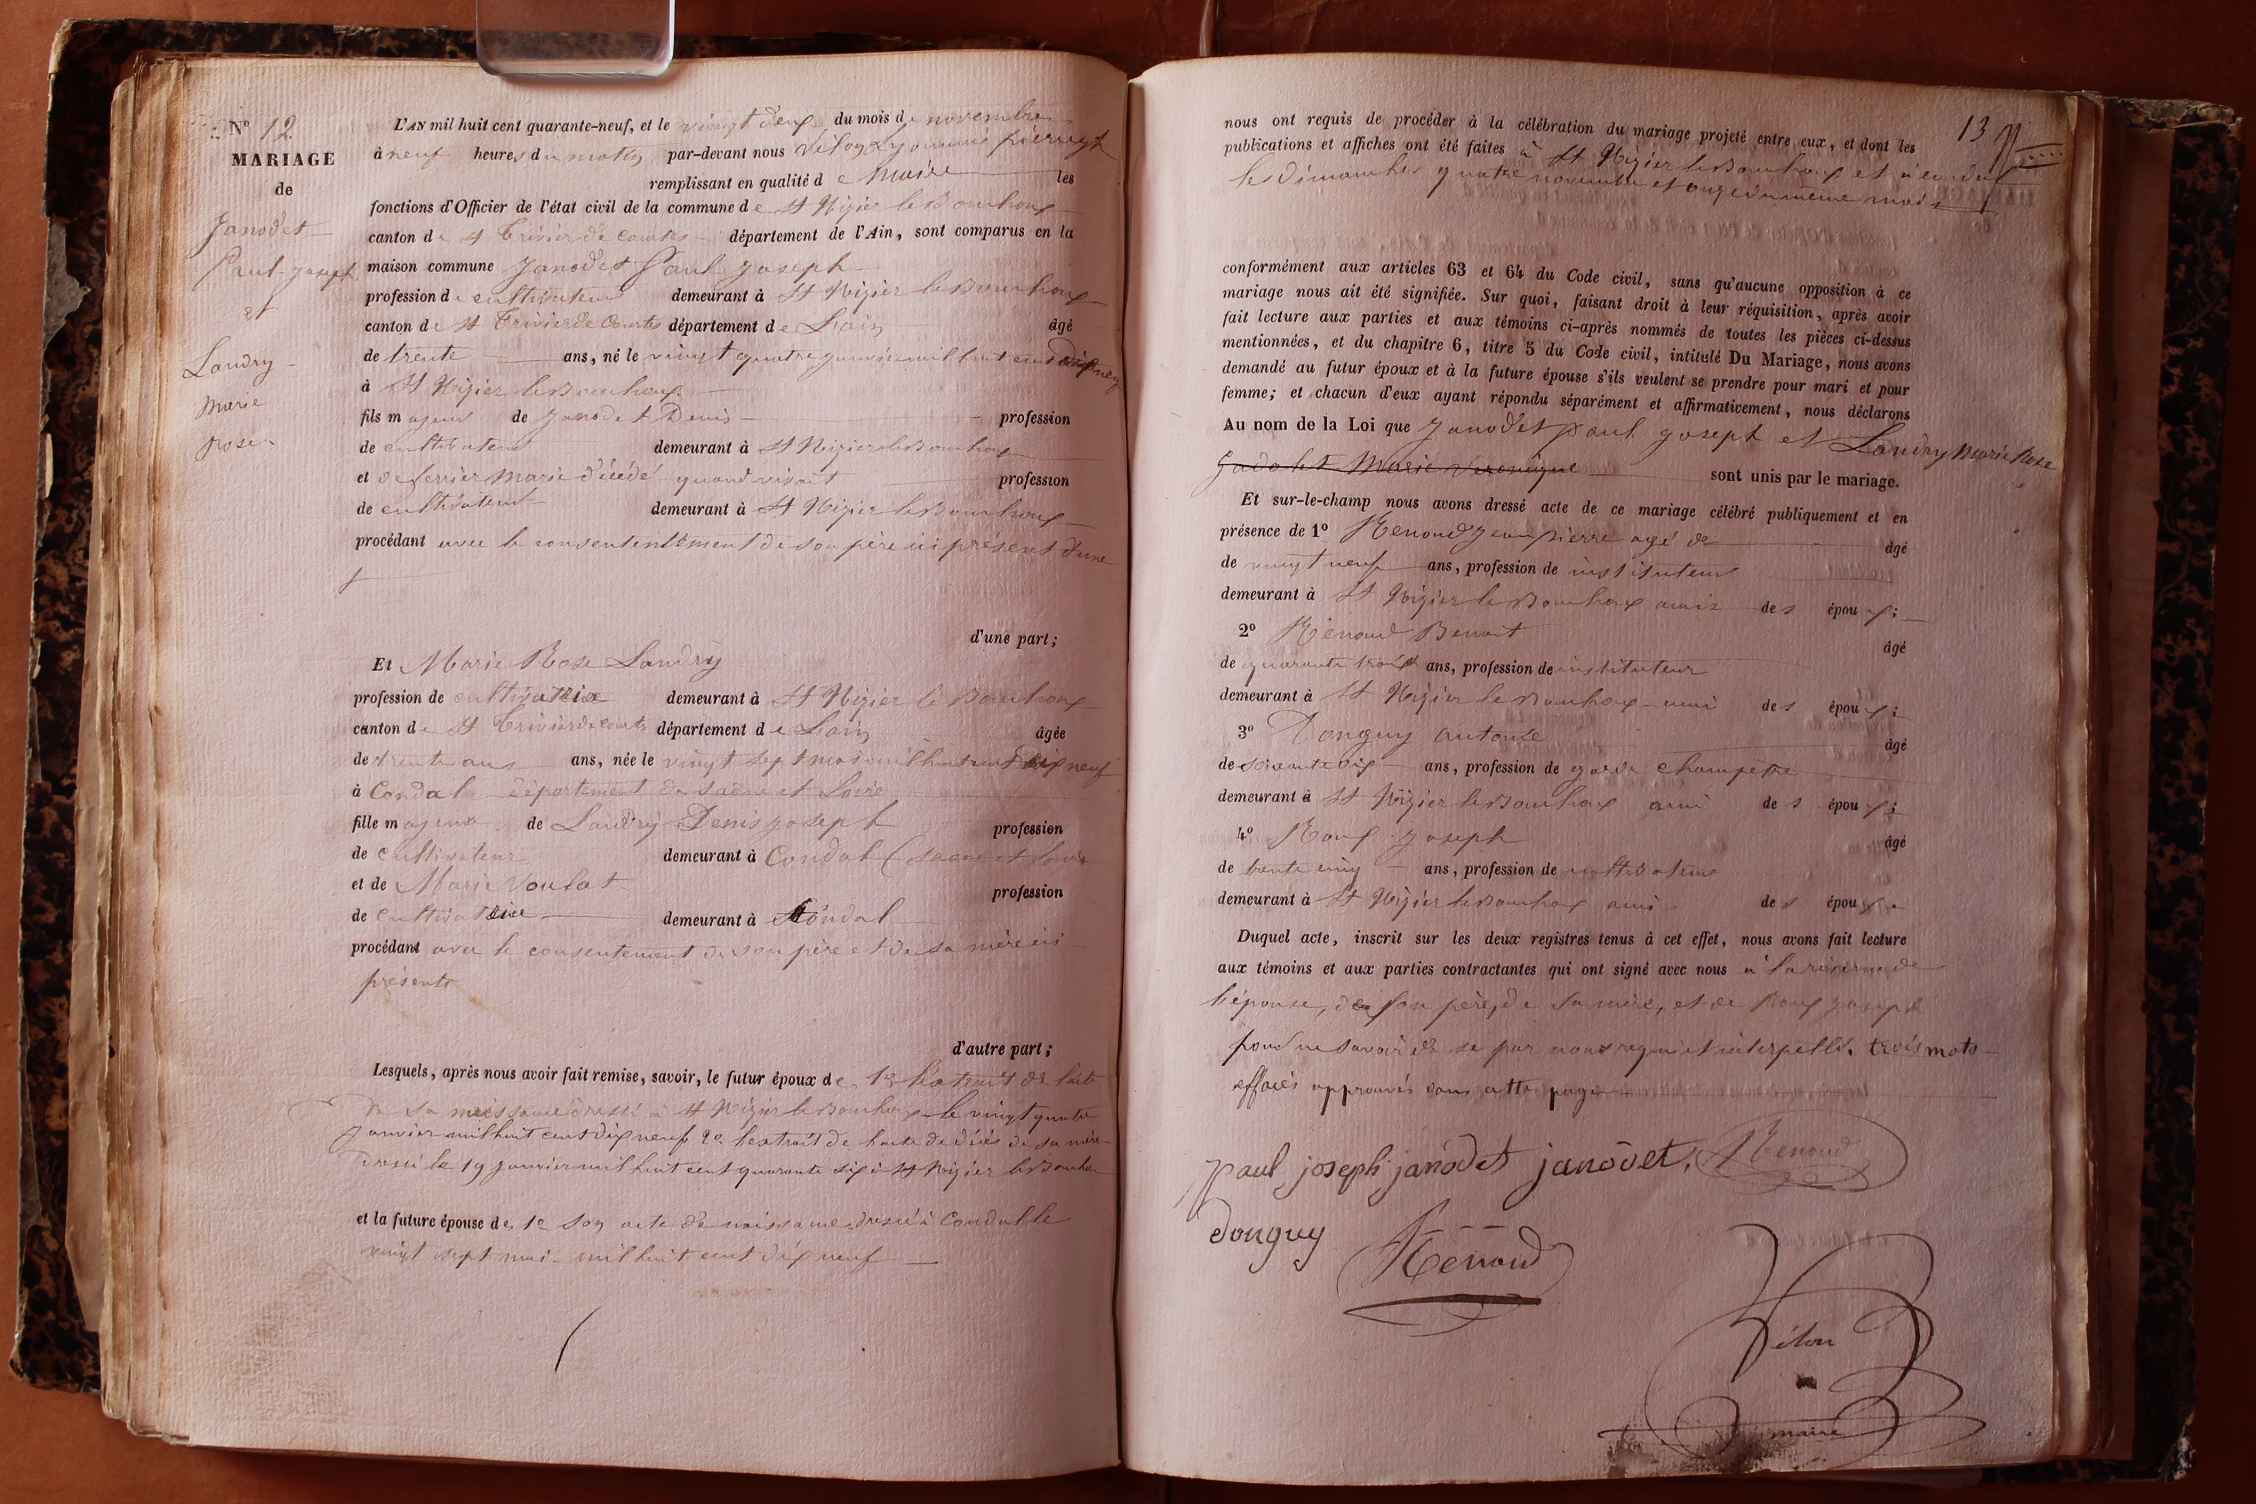 N° 12
MARIAGE
de
Janodet
Paul Joseph
et
Landry
Marie
Rose
L'AN mil huit cent quarante-neuf, et le vingt deux du mois de novembre
à neuf heures du matin par-devant nous
remplissant en qualité de Maire les
fonctions d'Officier de l'état civil de la commune de St Nizier le Bouchoux
canton de St Trivier de Courtes département de l'Ain, sont comparus en la
maison commune Janodet Paul Joseph
profession de cultivateur demeurant à St Nizier le Bouchoux
canton de St Trivier de Courtes département de Lain âgé
de trente ans, né le vingt quatre janvier mil huit cent dix neuf
à St Nizier le Bouchoux
fils majeur de Janodet Denis profession
de cultivateur demeurant à St Nizier le Bouchoux
et de ferrier Marie décédé quand vivait profession
de cultivateur demeurant à St Nizier le Bouchoux
procédant avec le de son père ici présent d'une
d'une part;
Et Marie Rose Landry
profession de cultivatrice demeurant à St Nizier le Bouchoux
canton de St Trivier de Courtes département de Lain âgée
de trente ans ans, née le vingt sept mai mil huit cent dix neuf
à Condal département de Saône et Loire
fille majeure de Landry Denis Joseph profession
de cultivateur demeurant à Condal (Saone et Loire
et de Marie Voulat profession
de cultivatrice demeurant à Condal
procédant avec le consentement de son père et de sa mère ici
présents
d'autre part;
Lesquels, après nous avoir fait remise, savoir, le futur époux de 1° l'extrait de l'acte
de sa naissance dressé à St Nizier le Bouchoux le vingt quatre
janvier mil huit cent dix neuf 2° l'extrait de l'acte de décés de sa mère
dressé le 19 janvier mil huit cent quarante six à St Nizier le Bouchoux
et la future épouse de 1° son acte de naissance dressé à Condal le
vingt sept mai mil huit cent dix neuf
13
nous ont requis de procéder à la célébration du mariage projeté entre eux, et dont les
publications et affiches ont été faites à St Nizier le Bouchoux et à Condal
les dimanches quatre novembre et onze du même mois
conformément aux articles 63 et 64 du Code civil, sans qu'aucune opposition à ce
mariage nous ait été signifiée. Sur quoi, faisant droit à leur réquisition, après avoir
fait lecture aux parties et aux témoins ci-après nommés de toutes les pièces ci-dessus
mentionnées, et du chapitre 6, titre 5 du Code civil, intitulé Du Mariage, nous avons
demandé au futur époux et à la future épouse s'ils veulent se prendre pour mari et pour
femme; et chacun d'eux ayant répondu séparément et affirmativement, nous déclarons
Au nom de la Loi que Janodet paul joseph et Landry Marie Rose
Marie Veronique sont unis par le mariage.
Et sur-le-champ nous avons dressé acte de ce mariage célébré publiquement et en
présence de 1° Renoud Jean pierre agé de âgé
de vingt neuf ans, profession de instituteur
demeurant à St Nizier le Bouchoux amis des époux;
2° Renoud Benoit âgé
de quarante trois ans, profession de instituteur
demeurant à St Nizier le Bouchoux ami des époux;
3° Donguy antoine âgé
de soixante six ans, profession de garde champetre
demeurant à St Nizier le Bouchoux ami des époux;
4° Roux Joseph âgé
de trente cinq ans, profession de cultivateur
demeurant à St Nizier le Bouchoux ami des époux
Duquel acte, inscrit sur les deux registres tenus à cet effet, nous avons fait lecture
aux témoins et aux parties contractantes qui ont signé avec nous à la réserve de
l'épouse, de son père, de sa mère, et de Roux Joseph
pour ne savoir de ce par nous requis et interpellé. trois mots
effacés approuvés dans cette page
paul joseph janodet janodet Renoud
donguy Renoud
Vélon
maire